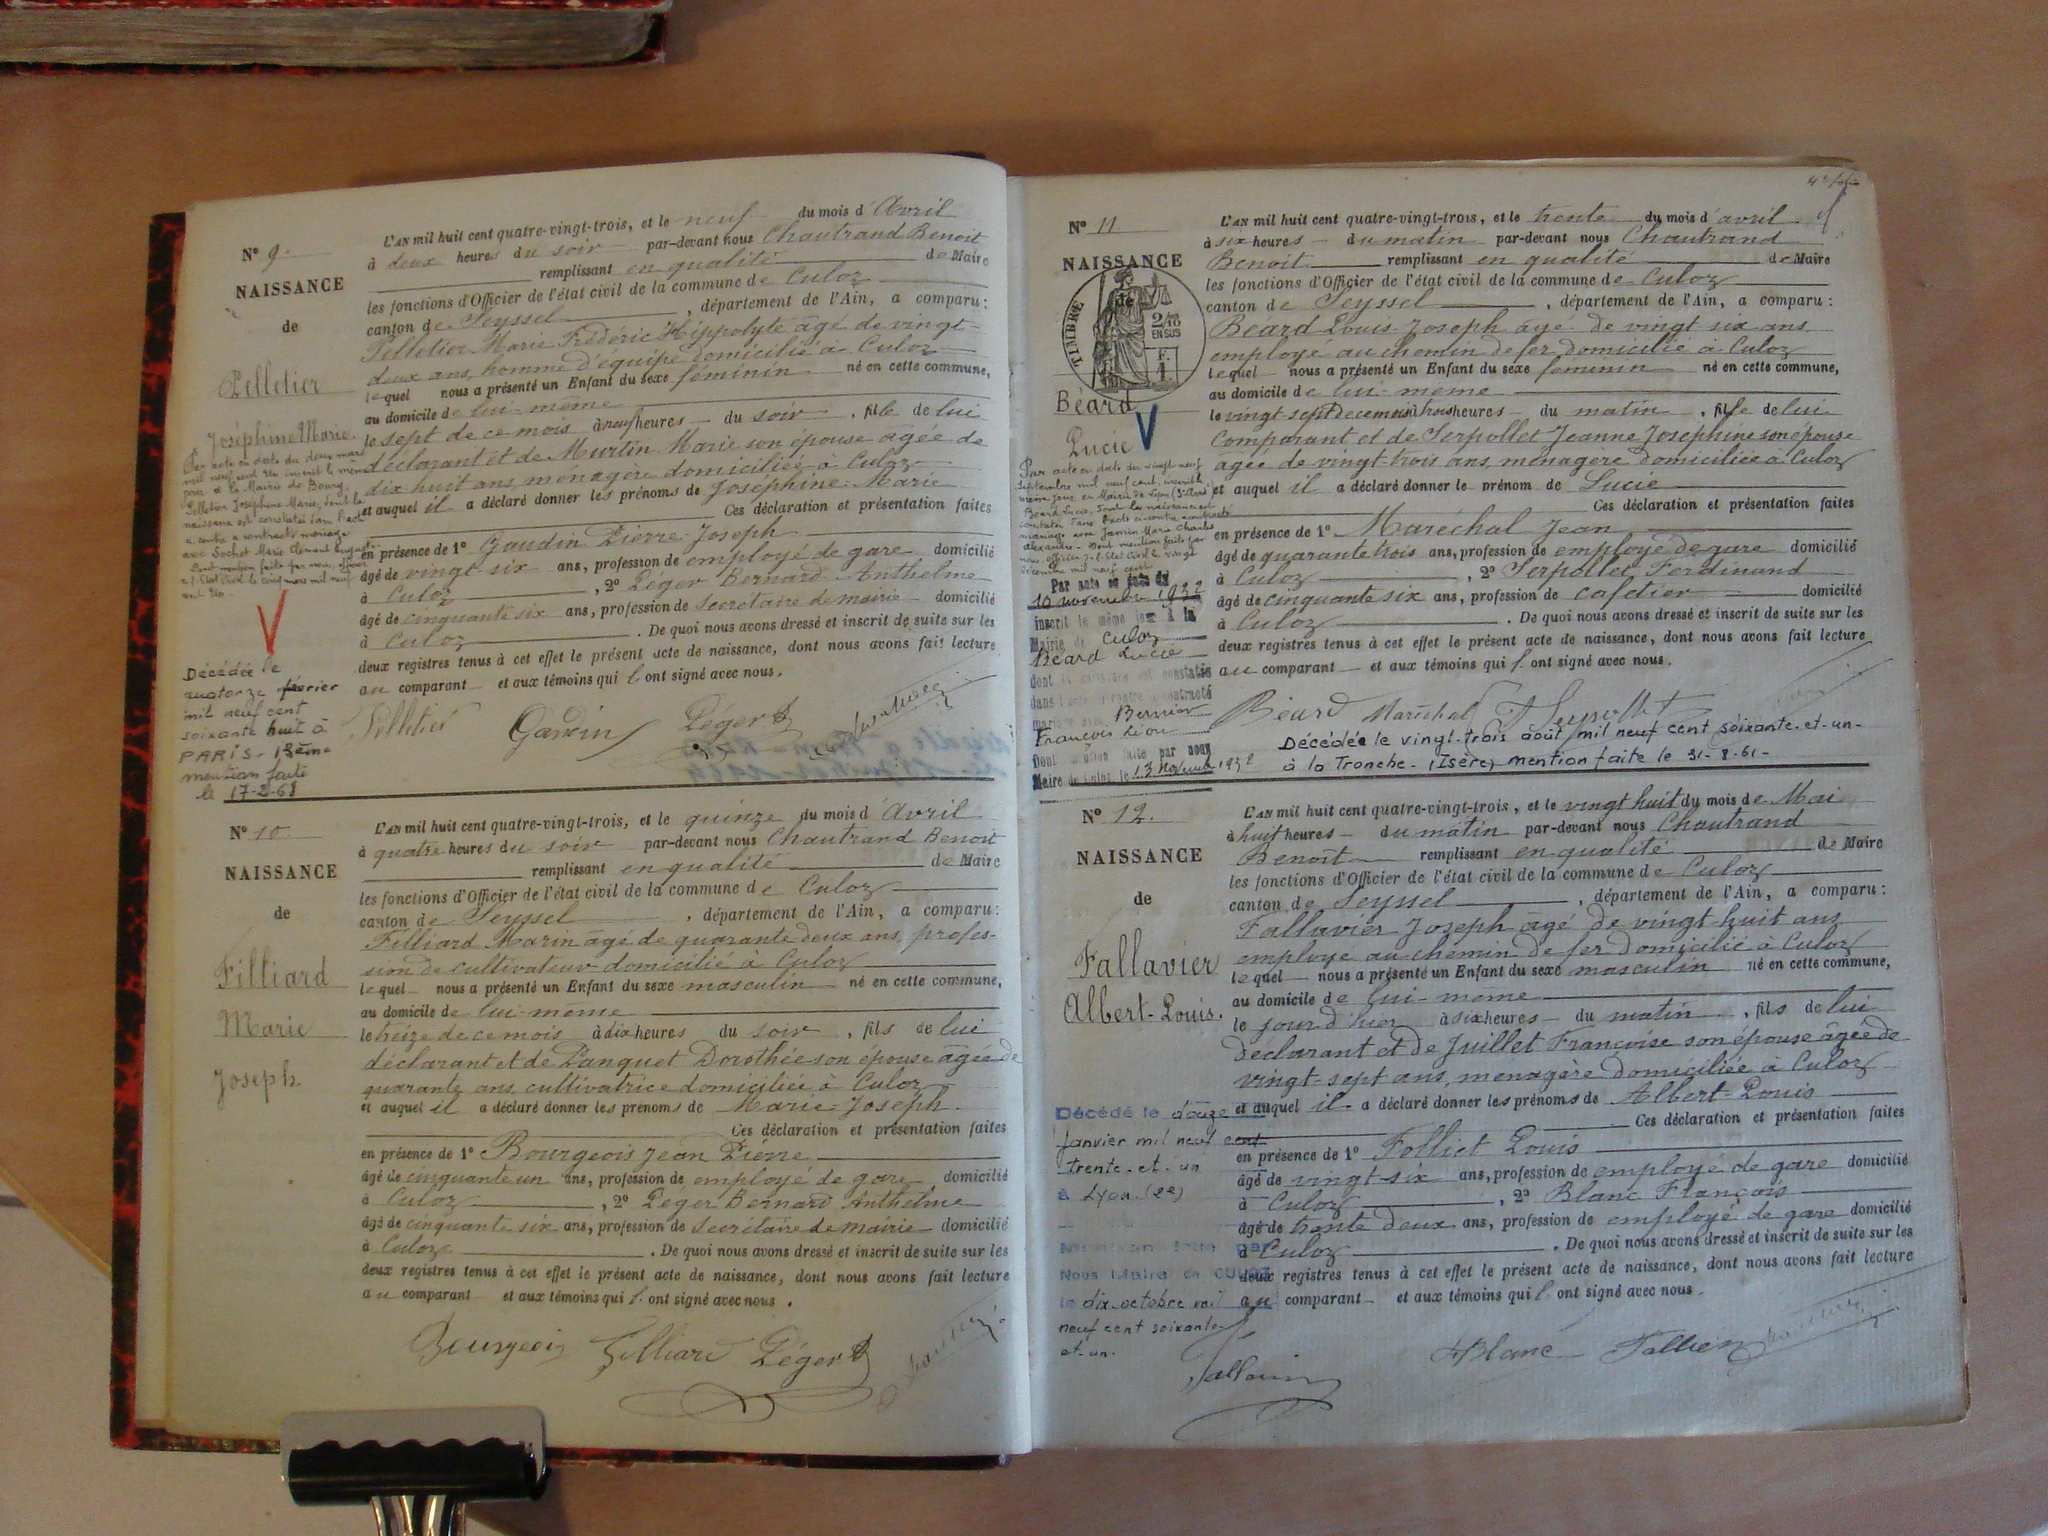 Nº 9.
NAISSANCE
de
Pelletier
Joséphine Marie.
Par acte en date du deux mars
mil neuf cent un inscrit le même
jour à la Mairie de Bourg,
Pelletier Joséphine Marie, dont la
naissance est constatée dans l'acte
ci-contre a contracté mariage
avec Sochet Marie Clément August
Dont mention faite par nous, officier
de l'Etat Civil le cinq mars mil neuf
cent un.
Décédée le
quatorze février
mil neuf cent
soixante huit à
PARIS - 13ème
mention faite
le 17-2-68
L'AN mil huit cent quatre-vingt-trois, et le neuf du mois d'Avril
à deux heures du soir par-devant nous Chautrand Benoit
remplissant en qualité de Maire
les fonctions d'Officier de l'état civil de la commune de Culoz
canton de Seyssel, département de l'Ain, a comparu:
Pelletier Marie Frédéric Hippolyte âgé de vingt-
deux ans, homme d'équipe domicilié à Culoz
lequel nous a présenté un Enfant du sexe féminin né en cette commune,
au domicile de lui-même
le sept de ce mois à neuf heures du soir, fille de lui
déclarant et de Murtin Marie son épouse âgée de
dix huit ans ménagère domiciliée à Culoz
et auquel il a déclaré donner les prénoms de Joséphine Marie
Ces déclaration et présentation faites
en présence de 1º Gaudin Pierre Joseph
âgé de vingt-six ans, profession de employé de gare domicilié
à Culoz, 2º Léger Bernard Anthelme
âgé de cinquante six ans, profession de secrétaire de mairie domicilié
à Culoz. De quoi nous avons dressé et inscrit de suite sur les
deux registres tenus à cet effet le présent acte de naissance, dont nous avons fait lecture
au comparant et aux témoins qui l'ont signé avec nous.
Pelletier Gaudin Léger B
Nº 10.
NAISSANCE
de
Filliard
Marie
Joseph.
L'AN mil huit cent quatre-vingt-trois, et le quinze du mois d'Avril
à quatre heures du soir par-devant nous Chautrand Benoit
remplissant en qualité de Maire
les fonctions d'Officier de l'état civil de la commune de Culoz
canton de Seyssel, département de l'Ain, a comparu:
Filliard Marin âgé de quarante deux ans, profes-
sion de cultivateur domicilié à Culoz
lequel nous a présenté un Enfant du sexe masculin né en cette commune,
au domicile de lui-même
le treize de ce mois à dix heures du soir, fils de lui
déclarant et de Panquet Dorothée son épouse âgée de
quarante ans, cultivatrice domiciliée à Culoz
et auquel il a déclaré donner les prénoms de Marie-Joseph.
Ces déclaration et présentation faites
en présence de 1º Bourgeois Jean Pierre
âgé de cinquante un ans, profession de employé de gare domicilié
à Culoz, 2º Léger Bernard Anthelme
âgé de cinquante six ans, profession de Secrétaire de mairie domicilié
à Culoz. De quoi nous avons dressé et inscrit de suite sur les
deux registres tenus à cet effet le présent acte de naissance, dont nous avons fait lecture
au comparant et aux témoins qui l'ont signé avec nous.
Bourgeois Filliard Léger B
Nº 11
NAISSANCE
de
TIMBRE
2/10
EN SUS
F.
1.
Béard
Lucie
Par acte en date du vingt neuf
septembre mil neuf cent, inscrit le
même jour en Mairie de
Béard Lucie, dont la naissance est
constatée dans l'acte ci-contre a contracté
mariage avec Jamin Marie Charles
Alexandre. Dont mention faite par
nous officier de l'Etat Civil le vingt
décembre mil neuf cent
Par acte en date du
10 novembre 1932
inscrit le même jour à la
Mairie de Culoz
Béard Lucie
dont la naissance est constatée
dans l'acte ci-contre a contracté
mariage avec Bernier
François Léon
Dont mention faite par nous
Maire de Culoz le 13 Novembre 1932
L'AN mil huit cent quatre-vingt-trois, et le trente du mois d'avril
à six heures du matin par-devant nous Chautrand
Benoit remplissant en qualité de Maire
les fonctions d'Officier de l'état civil de la commune de Culoz
canton de Seyssel, département de l'Ain, a comparu:
Béard Louis Joseph âgé de vingt six ans
employé au chemin de fer domicilié à Culoz
lequel nous a présenté un Enfant du sexe féminin né en cette commune,
au domicile de lui-même
le vingt sept de ce mois à trois heures du matin, fille de lui
comparant et de Serpollet Jeanne Joséphine son épouse
âgée de vingt-trois ans, ménagère domiciliée à Culoz
et auquel il a déclaré donner le prénom de Lucie
Ces déclaration et présentation faites
en présence de 1º Maréchal Jean
âgé de quarante trois ans, profession de employé de gare domicilié
à Culoz, 2º Serpollet Ferdinand
âgé de cinquante six ans, profession de cafetier domicilié
à Culoz. De quoi nous avons dressé et inscrit de suite sur les
deux registres tenus à cet effet le présent acte de naissance, dont nous avons fait lecture
au comparant et aux témoins qui l'ont signé avec nous.
Béard Maréchal F Serpollet
Décédée le vingt-trois août mil neuf cent soixante-et-un-
à la Tronche-(Isère) mention faite le 31-8-61-
Nº 12.
NAISSANCE
de
Fallavier
Albert-Louis.
Décédé le douze
janvier mil neuf cent
trente-et-un
à Lyon (2e)
Mention faite par
Nous Maire de CULOZ
le dix octobre mil
neuf cent soixante
et-un.
L'AN mil huit cent quatre-vingt-trois, et le vingt huit du mois de Mai
à huit heures du matin par-devant nous Chautrand
Benoit remplissant en qualité de Maire
les fonctions d'Officier de l'état civil de la commune de Culoz
canton de Seyssel, département de l'Ain, a comparu:
Fallavier Joseph âgé de vingt-huit ans
employé au chemin de fer domicilié à Culoz
lequel nous a présenté un Enfant du sexe masculin né en cette commune,
au domicile de lui-même
le jour d'hier à six heures du matin, fils de lui
déclarant et de Juillet Françoise son épouse âgée de
vingt-sept ans, ménagère domiciliée à Culoz
et auquel il a déclaré donner les prénoms de Albert-Louis
Ces déclaration et présentation faites
en présence de 1º Folliet Louis
âgé de vingt-six ans, profession de employé de gare domicilié
à Culoz, 2º Blanc François
âgé de trente deux ans, profession de employé de gare domicilié
à Culoz. De quoi nous avons dressé et inscrit de suite sur les
deux registres tenus à cet effet le présent acte de naissance, dont nous avons fait lecture
au comparant et aux témoins qui l'ont signé avec nous.
Blanc